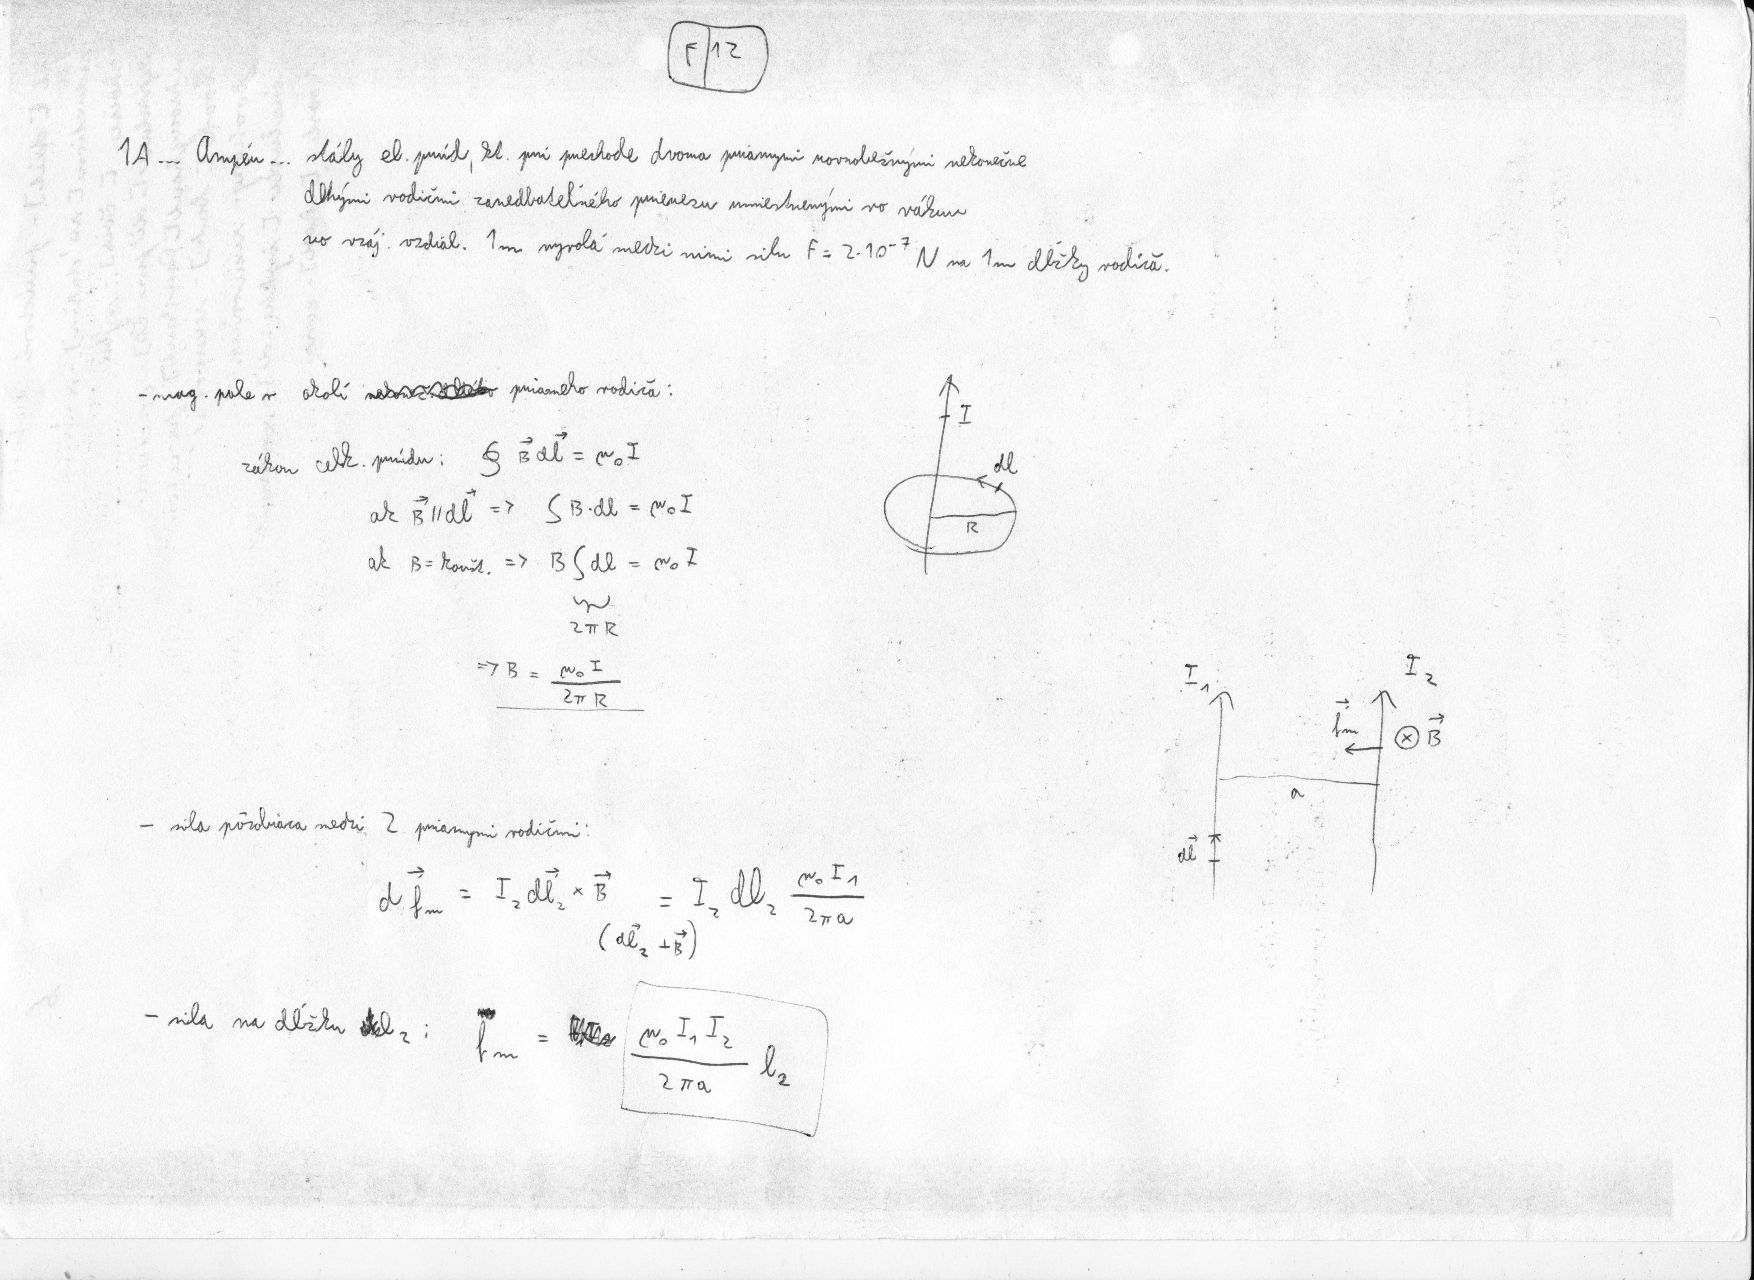 F 12
1A ... Ampér ... stály el. prúd, kt. pri prechode dvoma priamymi rovnobežnými nekonečne
dlhými vodičmi zanedbateľného prierezu umiestnenými vo vákuu
vo vzáj. vzdial. 1m vyvolá medzi nimi silu F = 2·10⁻⁷ N na 1m dĺžky vodiča.
- mag. pole v okolí priameho vodiča:
I
zákon celk. prúdu: ∮ B⃗ dl⃗ = μ₀ I
dl
ak B⃗ // dl⃗ => ∫ B·dl = μ₀ I
R
ak B = konšt. => B ∫ dl = μ₀ I
2πR
=> B = μ₀ I / 2πR
I₁ I₂
f⃗m ⊗ B⃗
a
- sila pôsobiaca medzi 2 priamymi vodičmi:
dl⃗
d f⃗m = I₂ dl⃗₂ × B⃗ = I₂ dl₂ μ₀ I₁ / 2πa
(dl⃗₂ ⊥ B⃗)
- sila na dĺžku l₂: fm = μ₀ I₁ I₂ / 2πa l₂